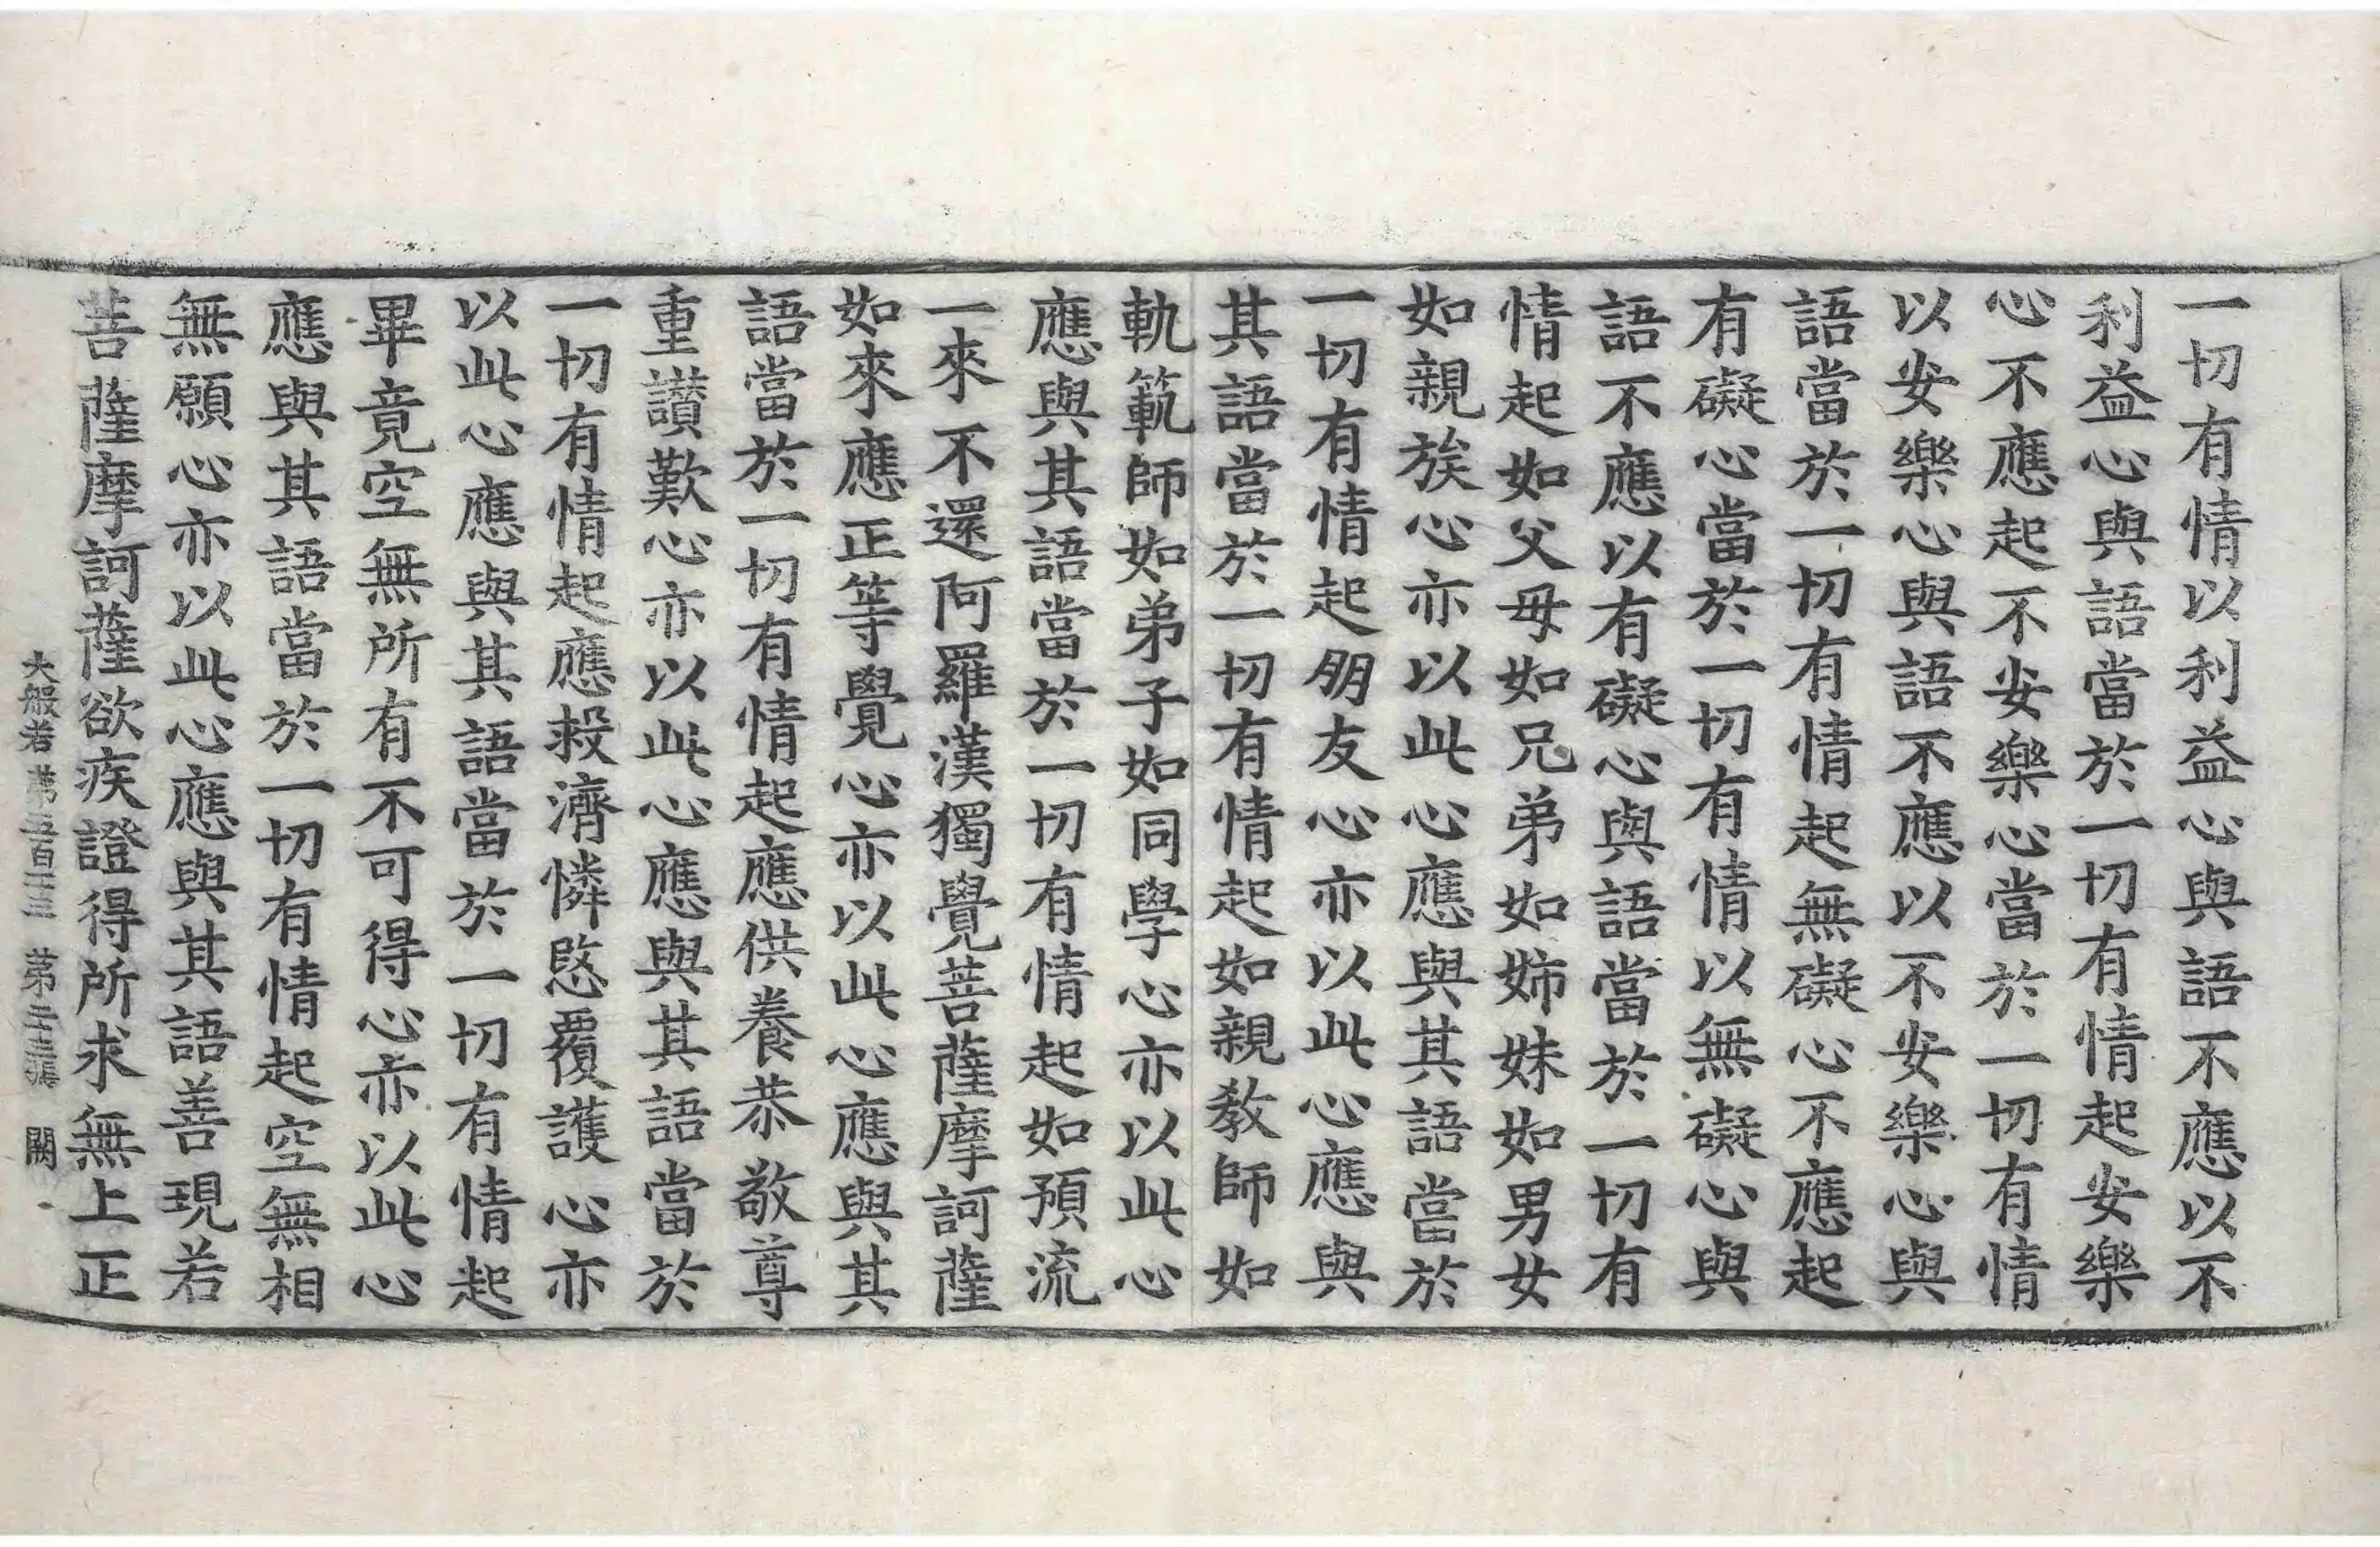 一切有情以利益心與語不應以不
利益心與語當於一切有情起安樂
心不應起不安樂心當於一切有情
以安樂心與語不應以不安樂心與
語當於一切有情起無礙心不應起
有礙心當於一切有情以無礙心與
語不應以有礙心與語當於一切有
情起如父母如兄弟如姉妹如男女
如親族心亦以此心應與其語當於
一切有情起朋友心亦以此心應與
其語當於一切有情起如親教師如
軌範師如弟子如同學心亦以此心
應與其語當於一切有情起如預流
一來不還阿羅漢獨覺菩薩摩訶薩
如來應正等覺心亦以此心應與其
語當於一切有情起應供養恭敬尊
重讃歎心亦以此心應與其語當於
一切有情起應救濟憐愍覆護心亦
以此心應與其語當於一切有情起
畢竟空無所有不可得心亦以此心
應與其語當於一切有情起空無相
無願心亦以此心應與其語善現若
菩薩摩訶薩欲疾證得所求無上正
大般若第五百二十三 第二十三張 闕